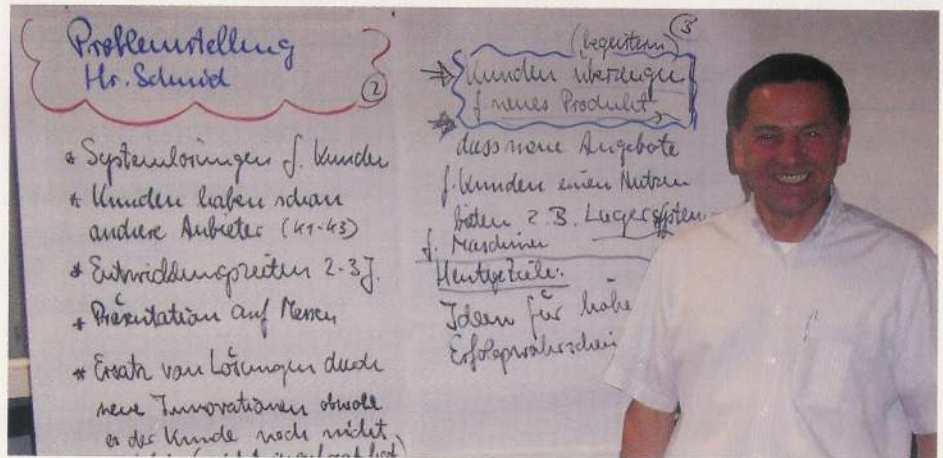 Problemstellung
Hr. Schmid
②
* Systemlösungen f. Kunden
* Kunden haben schon
andere Anbieter (K1-K3)
* Entwicklungszeiten 2-3 J.
* Präsentation auf Messen
* Ersatz von Lösungen durch
neue Innovationen obwohl
es der Kunde noch nicht
③
(begeistern)
Kunden überzeugen
f. neues Produkt,
dass neue Angebote
f. Kunden einen Nutzen
bieten z.B. Lagersystem
f. Maschinen
Ideen für hohe
Erfolgswahrschein